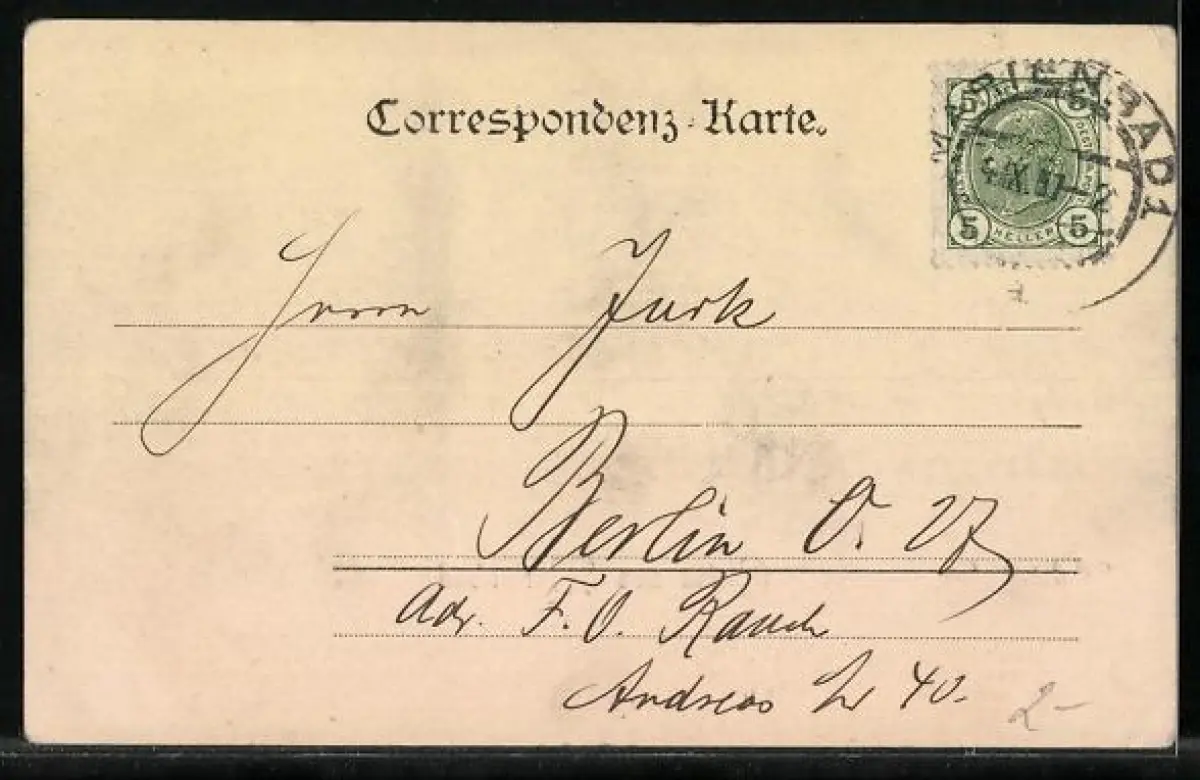 Correspondenz-Karte.
MARIENBAD 1
5 5
HELLER
5 5
Herrn Jurk
Berlin O. 27
Adr. F. O. Rauch
Andreas Str 40.
2-